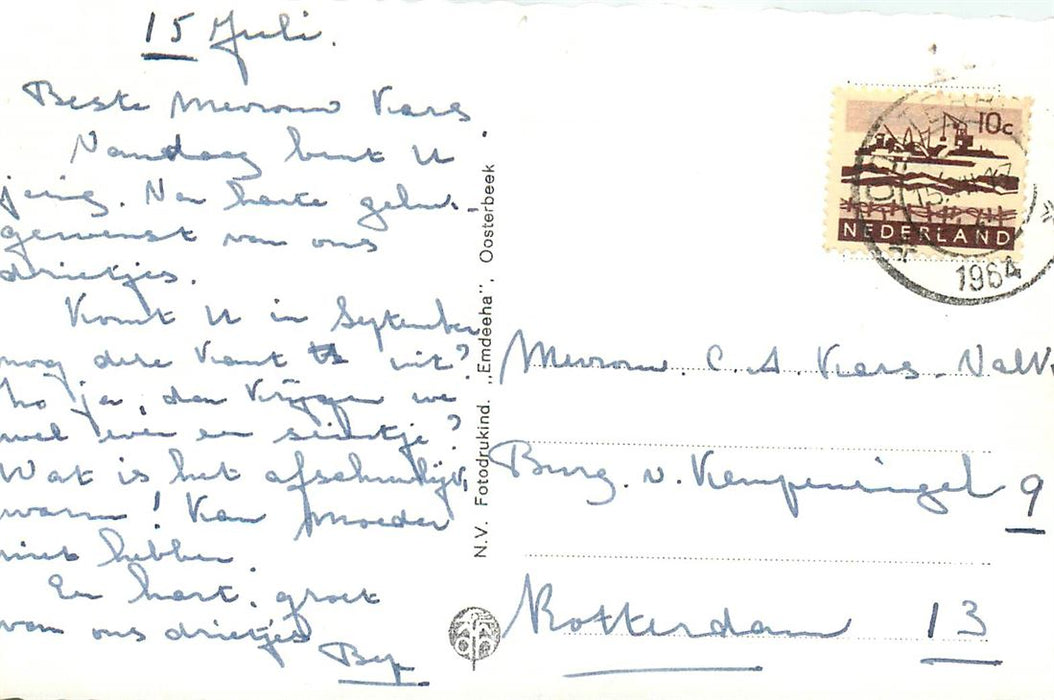 15 Juli.
Beste Mevrouw Kars,
Vandaag bent U
jarig. Van harte geluk-
gewenst van ons
drietjes.
Komt U in September
nog deze kant uit?
Zo ja, dan krijgen we
wel even een seintje?
Wat is het afschuwelijk
warm! Kan Moeder
niet hebben.
En hart. groet
van ons drietjes
N.V. Fotodrukind. „Emdeeha”, Oosterbeek
10c
NEDERLAND
1964
Mevrouw C. A. Kars-Valk
Burg. v. Kempensingel 9
Rotterdam 13